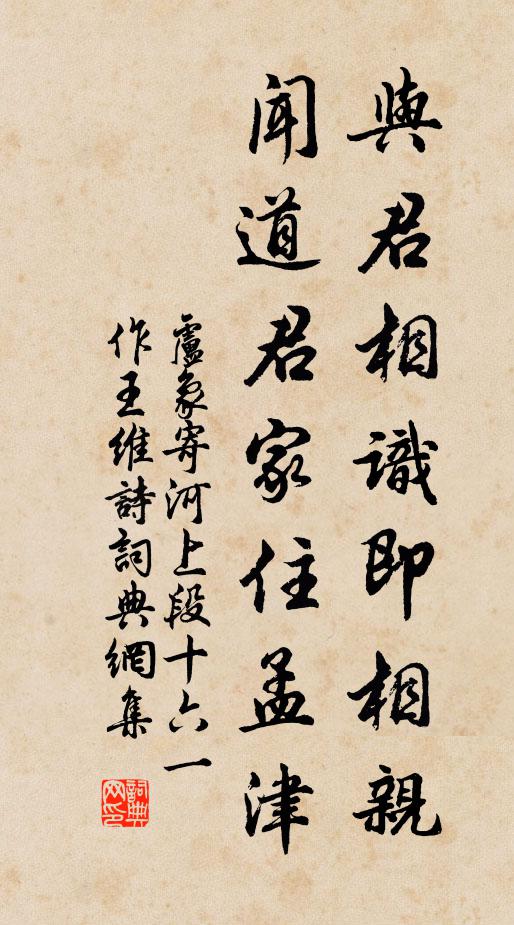 與君相識即相親
聞道君家住孟津
盧象寄河上段十六一
作王維詩詞典網集
詞典
网印